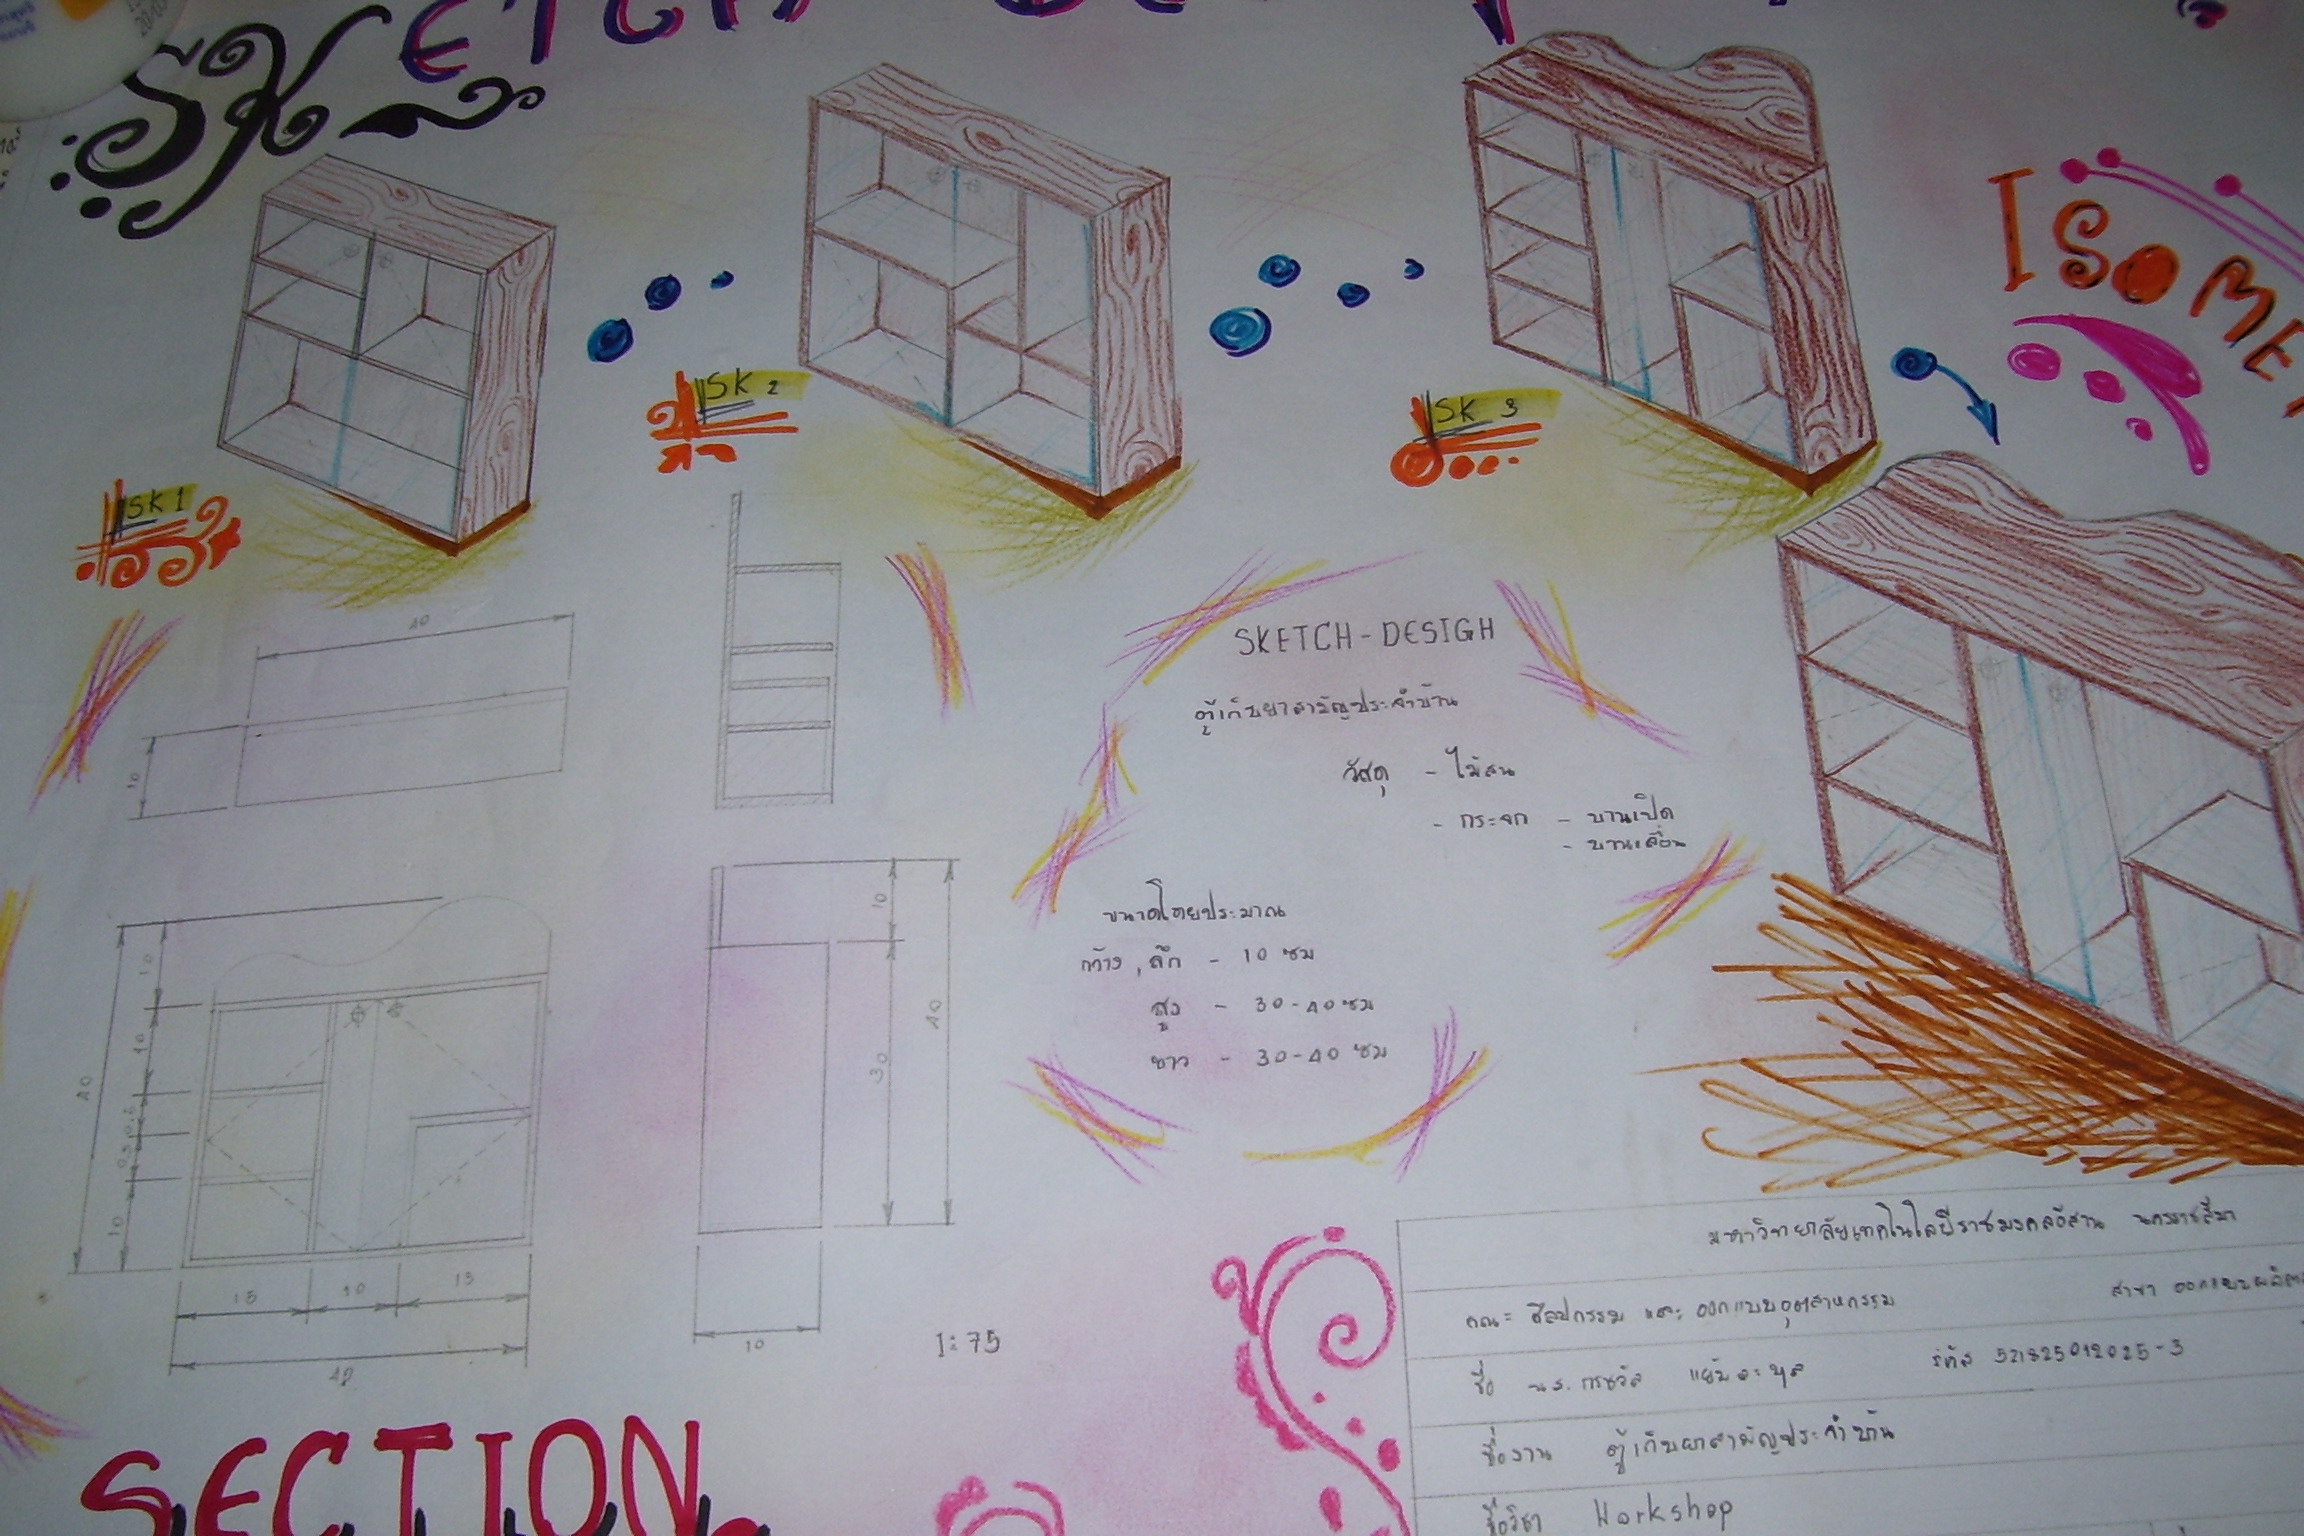 SKETCH
ISOME
SK 1
SK 2
SK 3
SKETCH - DESIGH
ตู้เก็บยาสามัญประจำบ้าน
วัสดุ - ไม้สน
- กระจก - บานเปิด
- บานเลื่อน
ขนาดโดยประมาณ
กว้าง, ลึก - 10 ซม
สูง - 30-40 ซม
ยาว - 30-40 ซม
40
10
10
40
10
10
15
10
15
40
10
30
40
10
1:75
SECTION
มหาวิทยาลัยเทคโนโลยีราชมงคลอีสาน นครราชสีมา
คณะ ศิลปกรรม และ ออกแบบอุตสาหกรรม สาขา ออกแบบผลิต
ชื่อ น.ส. รหัส 521825012025-3
ชื่องาน ตู้เก็บยาสามัญประจำบ้าน
ชื่อวิชา Workshop